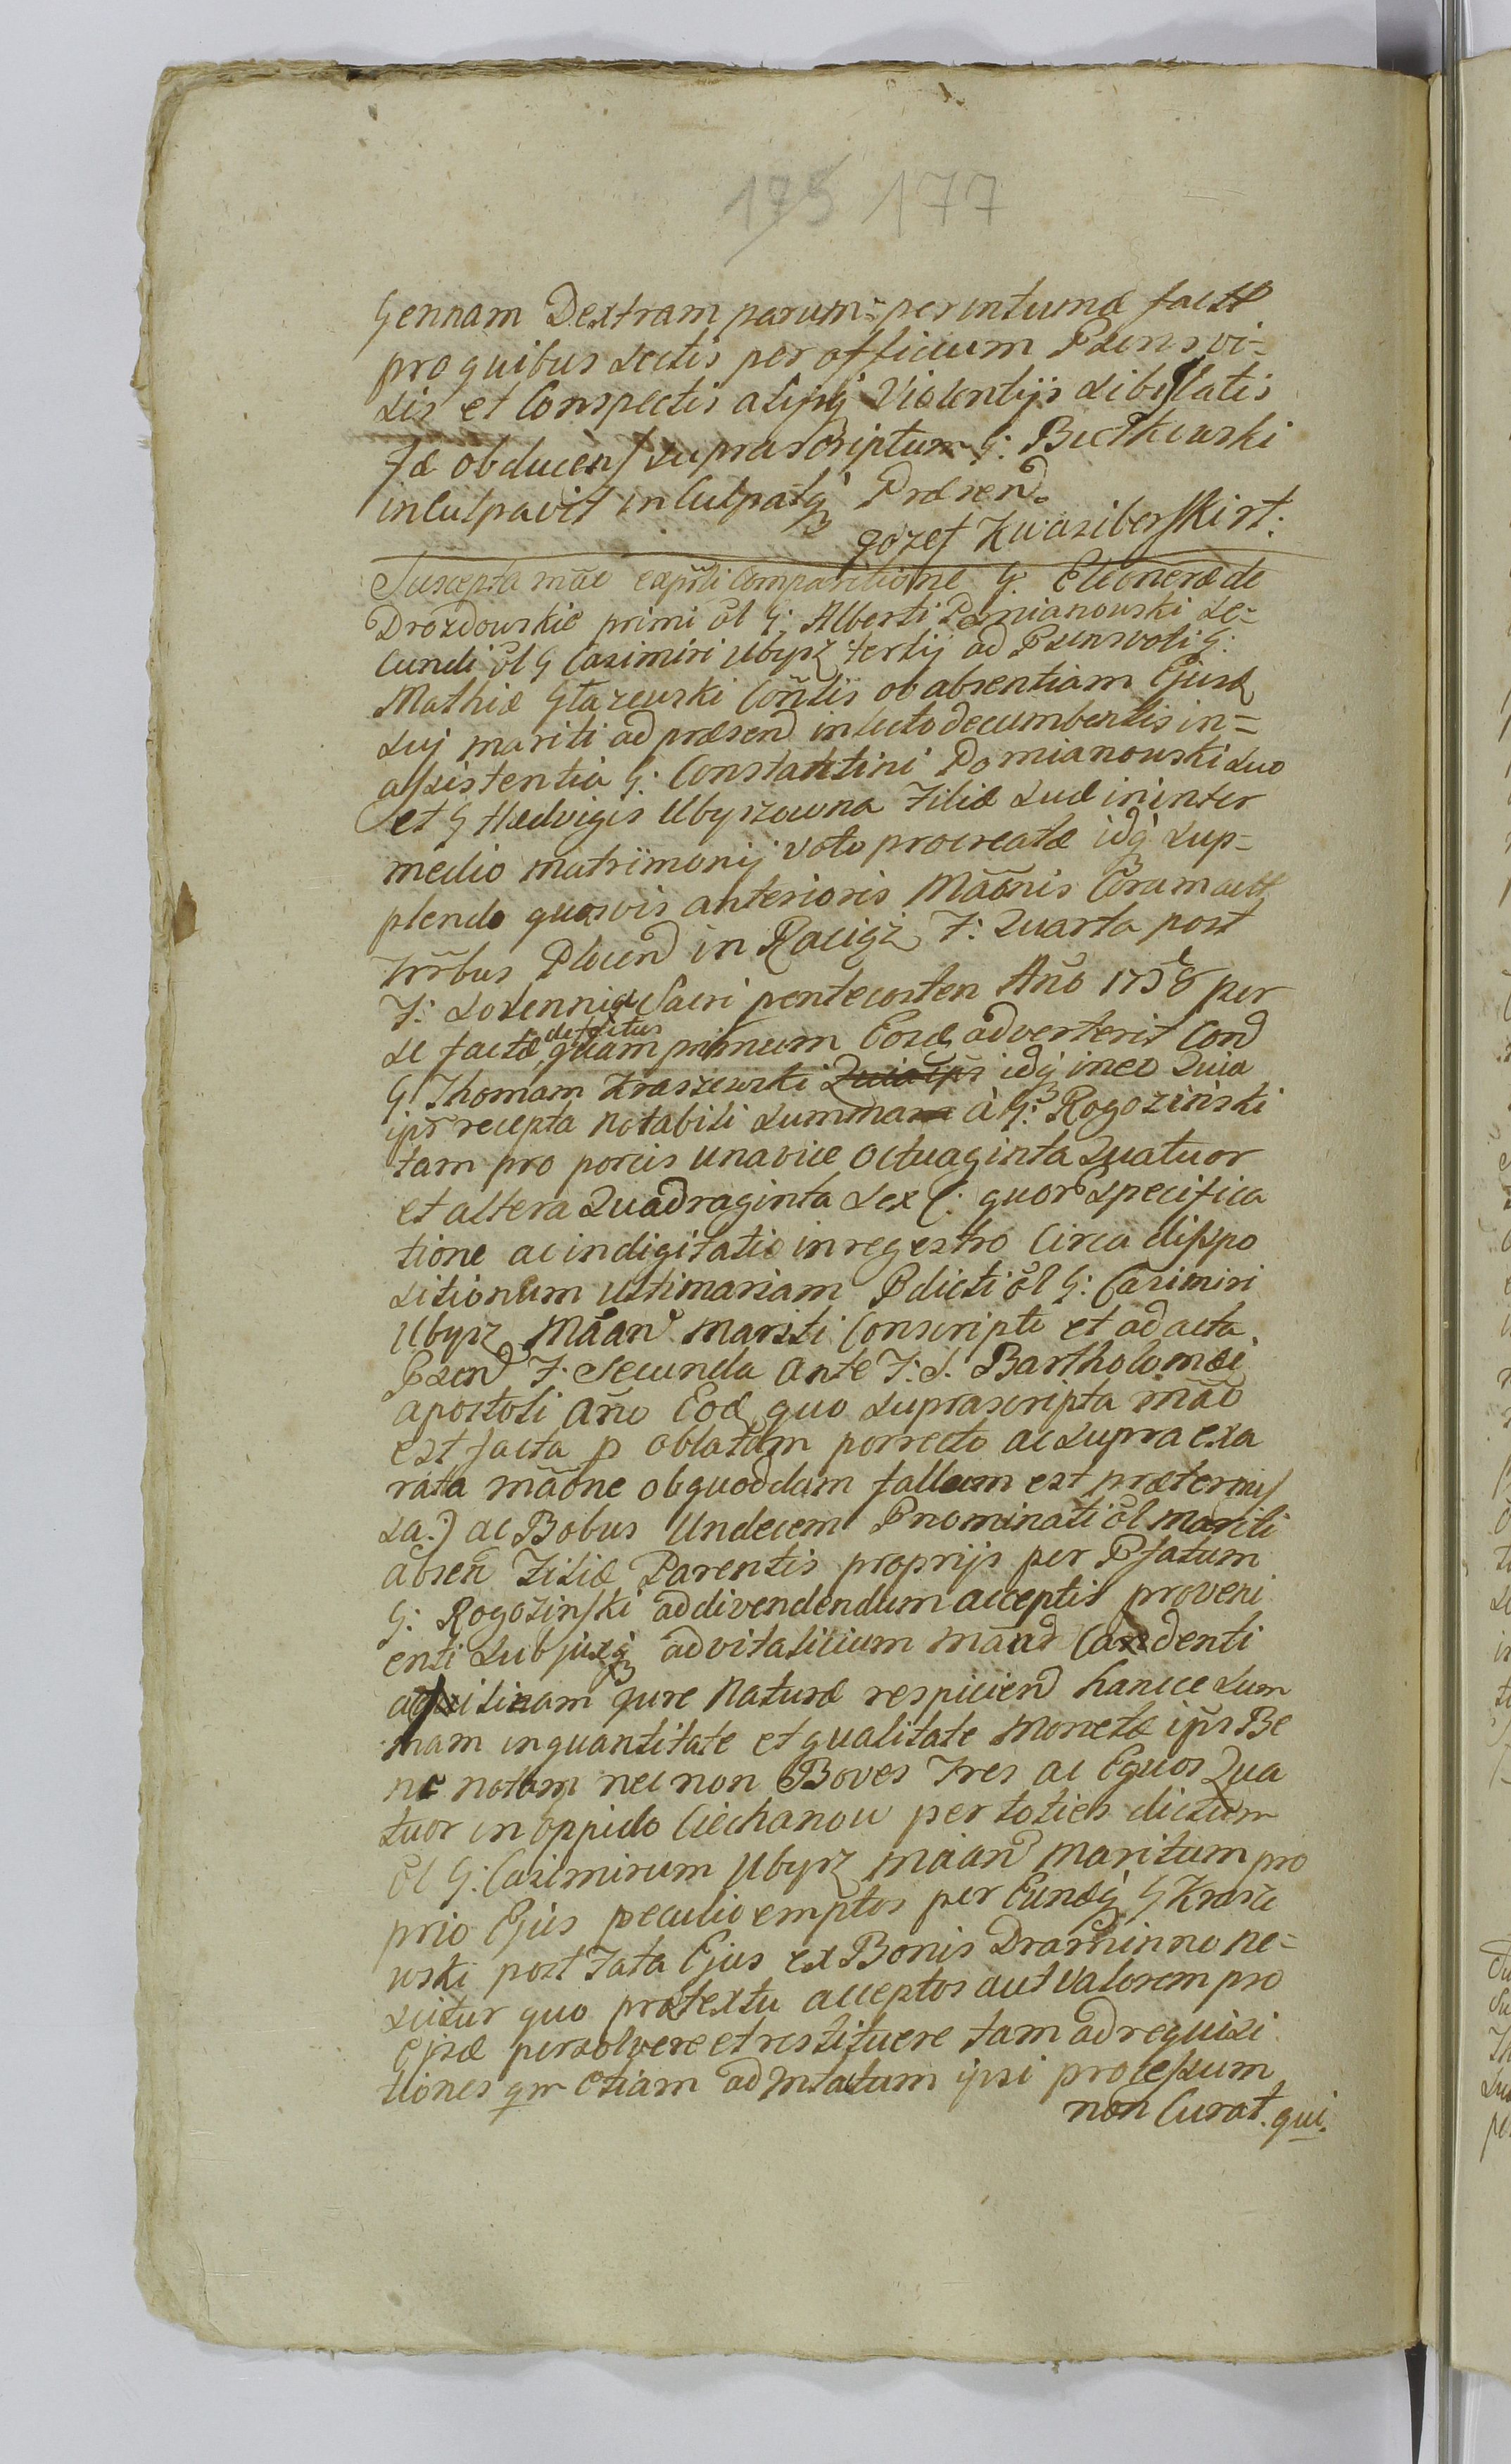 175 177
Gennam Dextram parum=per intumæ factt
pro quibus sectis per officium Psens vi=
sis et Conspectis alijsq Violentijs Libellatis
se obducen suprascriptum G: Buťkowski
inculpavit inculpatq Præsend.
Jozef Kwasiborski st:
Suscepta mãe exprsti Comparitione G. Eleonoræ de
Drozdowskie primi õl G: Alberti Domianowski se=
cundi õl G Casimiri Ubysz tertij ad Psens voti G:
Mathiæ Głazewski Cõntis ob absentiam Ejusd
sui mariti ad præsend in lecto decumbentis in=
assistentia G: Constantini Domianowski suo
et G Hedvigis Ubyszowna Filiæ suæ in inter
medio matrimonij voto procreatæ idq sup=
plendo quasvis anterioris Mãonis Coram actt
Trrbus Plocen in Raciąż F: Quarta post
F: Solennia Sacri pentecosten Anõ 1758 per
se factæ defectus quam primum Eosd adverterit Cond
G Thomam Kraszewski Quia ips idq ineo Quia
ips recepta notabili summa à G: Rogoziński
tam pro porcis una vice Octuaginta Quatuor
et altera Quadraginta sex (: quor specifica
tione ac indigitatio in regestro Circa dispo
sitionem ultimariam Pdicti õl G: Casimiri
Ubysz Mãan mariti Conscripti et ad acta
Psen F. Secunda Ante F: S. Bartholomæi
apostoli Anõ Eod quo suprascripta mão
est facta p oblatam porrecto ac supra exa
rata mãone ob quoddam fallum est prætermis
sa:) ac Bobus Undecem Pnominati õl mariti
absen Filiæ Parentis proprijs per Pfatum
G: Rogozinski ad divendendum acceptis proveni
enti sub jusq advitalitium mãnd Candenti
ac filiam jure Naturæ respicien hancce sum
mam in quantitate et qualitate Monetæ ips Be
ne notam nec non Boves Tres ac Equos Qua
tuor in oppido Ciechanow per toties dictum
õl G: Casimirum Ubysz mãan Maritum pro
prio Ejus peculio emptos per Eundq G Krasze
wski post Fata Ejus ex Bonis Draminno ne=
scitur quo prætextu acceptos aut Valorem pro
Ejsd persolvere et restituere tam ad requisi
tiones qm etiam ad Intatum ipsi processum
non Curat. qui.